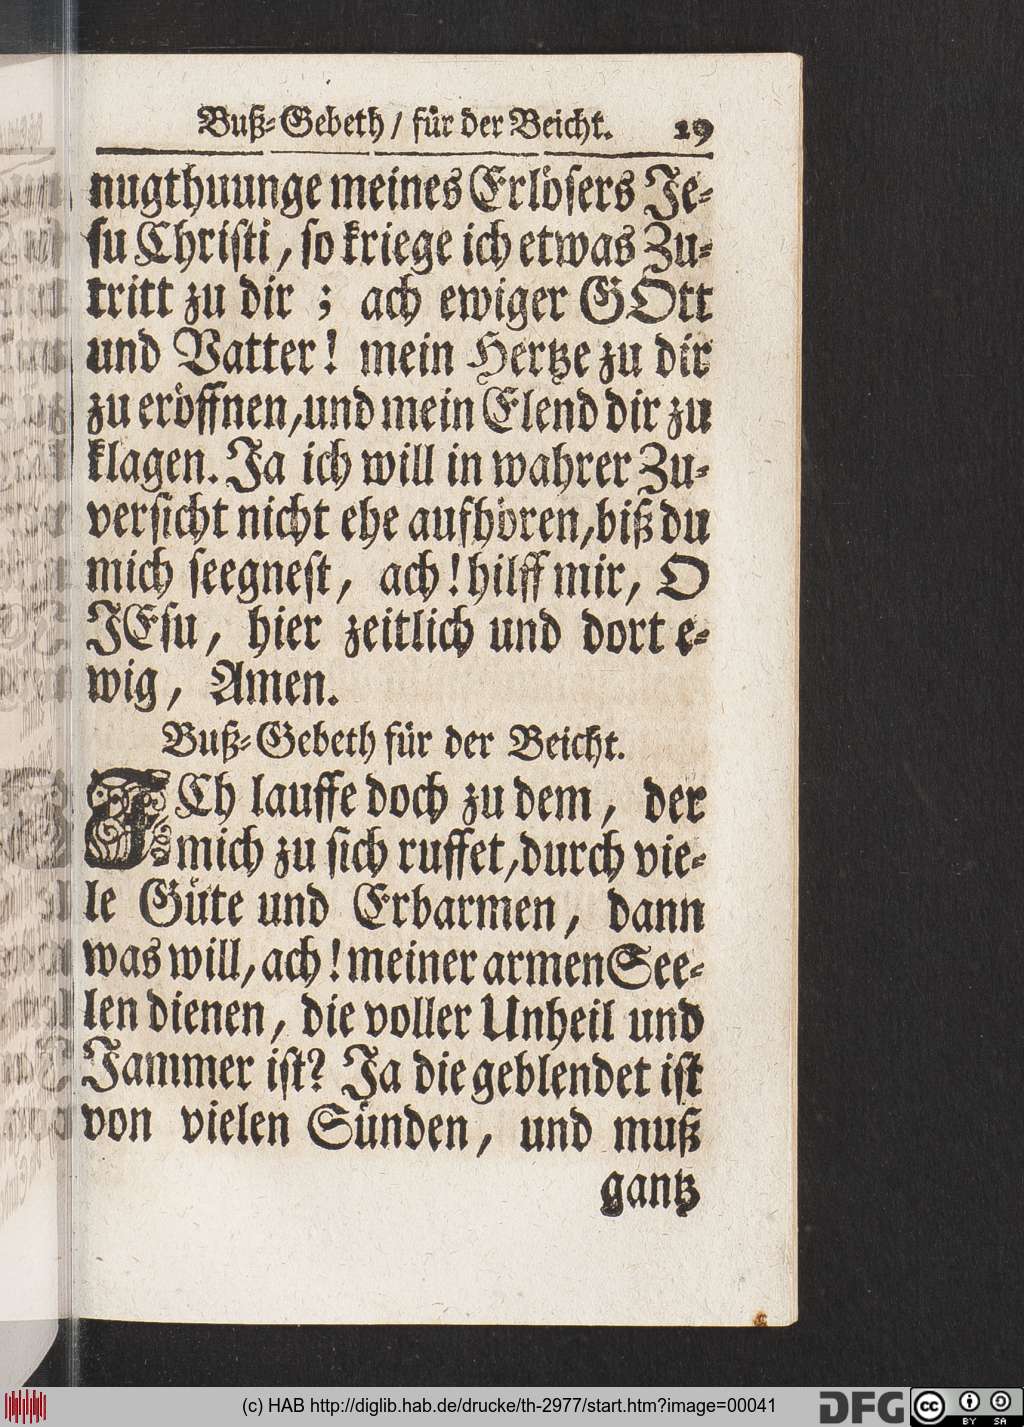 Buß-Gebeth / für der Beicht. 19
nugthuunge meines Erlösers Je-
su Christi, so kriege ich etwas Zu-
tritt zu dir ; ach ewiger GOtt
und Vatter! mein Hertze zu dir
zu eröffnen, und mein Elend dir zu
klagen. Ja ich will in wahrer Zu-
versicht nicht ehe aufhören, biß du
mich seegnest, ach! hilff mir, O
JEsu, hier zeitlich und dort e-
wig, Amen.
Buß-Gebeth für der Beicht.
JCh lauffe doch zu dem, der
mich zu sich ruffet, durch vie-
le Güte und Erbarmen, dann
was will, ach! meiner armen See-
len dienen, die voller Unheil und
Jammer ist? Ja die geblendet ist
von vielen Sünden, und muß
gantz
(c) HAB http://diglib.hab.de/drucke/th-2977/start.htm?image=00041
DFG
cc BY SA